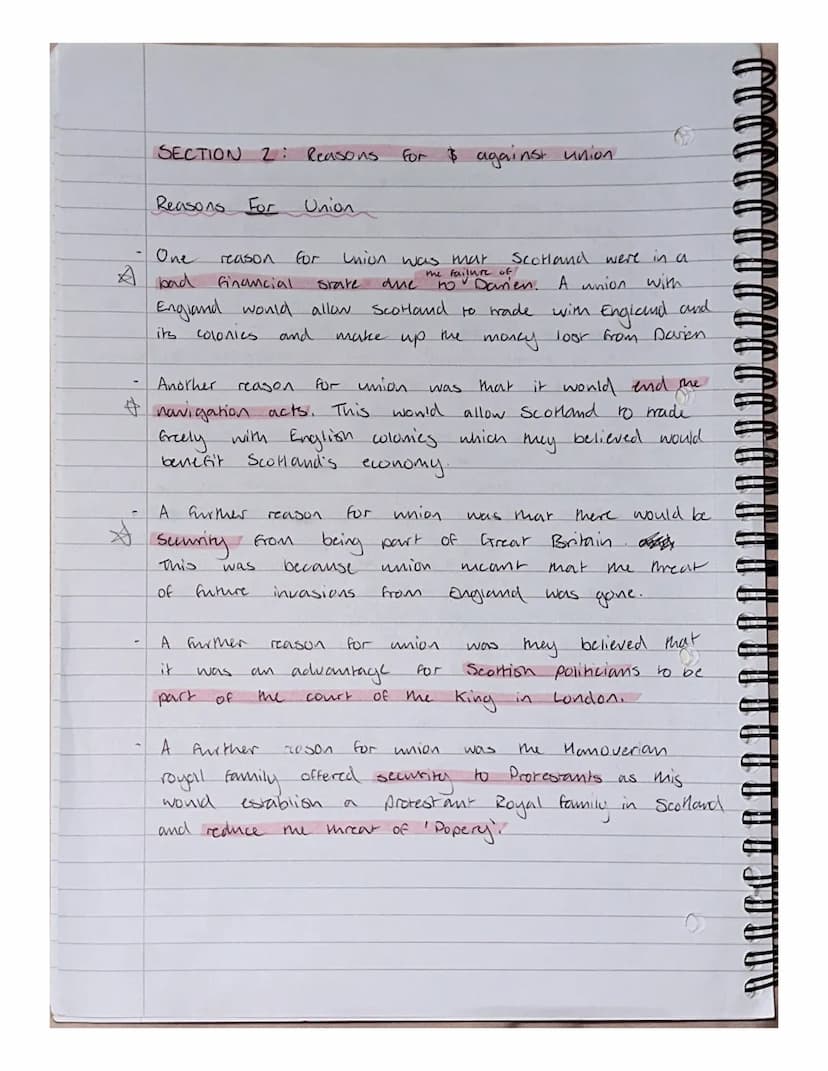 SECTION 2: Reasons for & against union
Reasons For Union
- One reason for union was that Scotland were in a
bad financial state due to the failure of Darien. A union with
England would allow Scotland to trade with England and
its colonies and make up the money lost from Darien
- Another reason for union was that it would end the
navigation acts. This would allow Scotland to trade
freely with English colonies which they believed would
benefit Scotland's economy.
- A further reason for union was that there would be
security from being part of Great Britain.
This was because union meant that the threat
of future invasions from England was gone.
- A further reason for union was they believed that
it was an advantage for Scottish politicians to be
part of the court of the King in London.
- A further reason for union was the Hanoverian
royal family offered security to Protestants as this
would establish a Protestant Royal family in Scotland
and reduce the threat of 'Popery'.